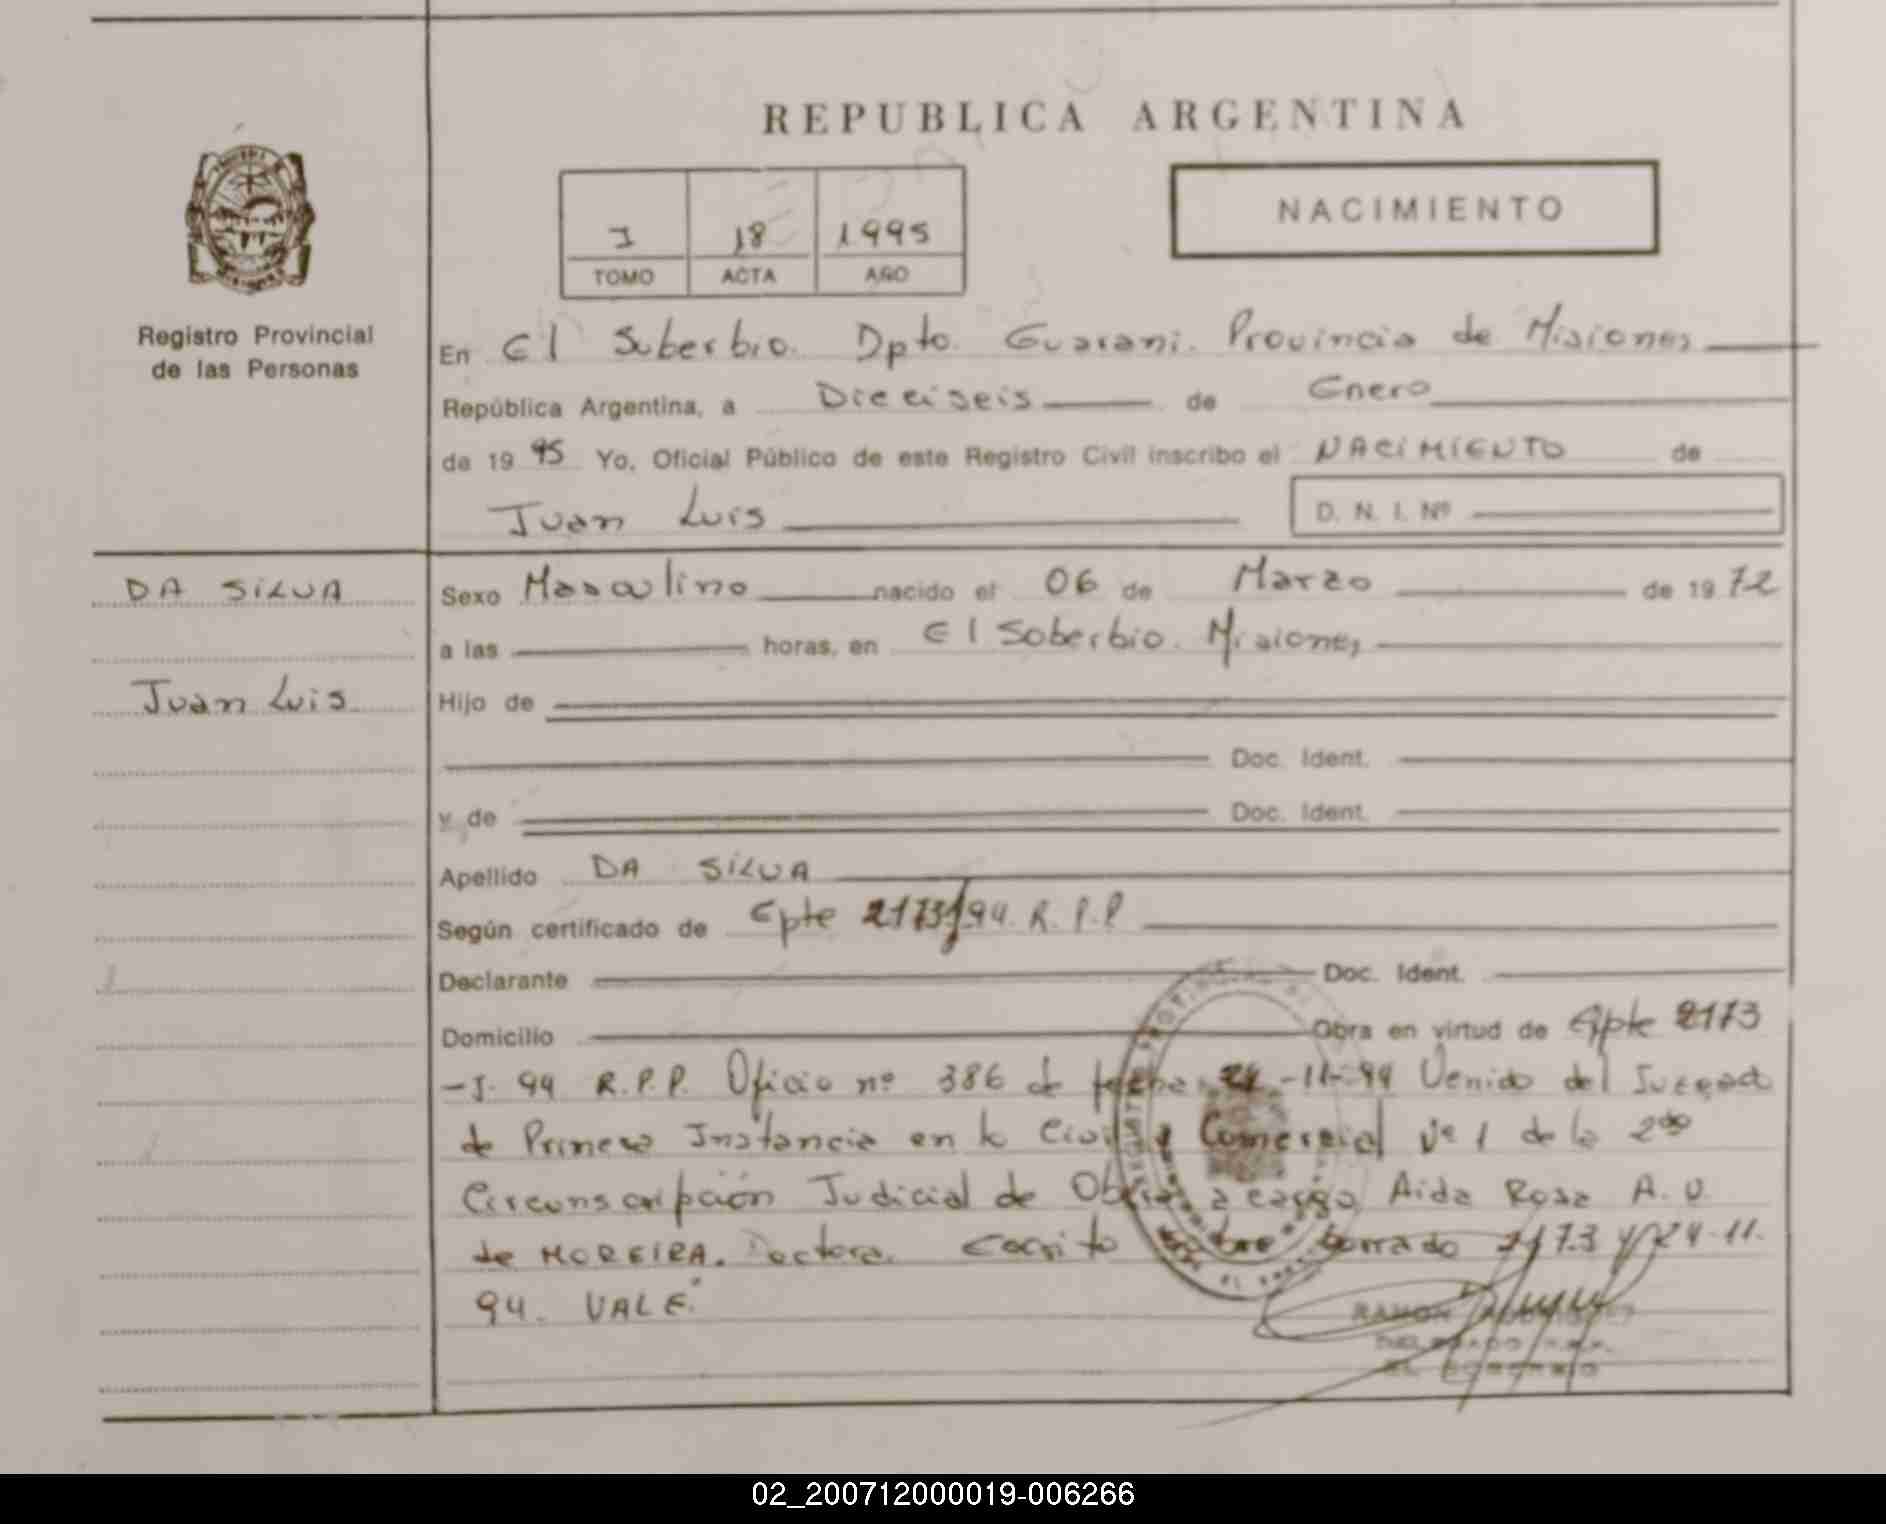 REPUBLICA ARGENTINA
NACIMIENTO
I 18 1995
TOMO ACTA AÑO
Registro Provincial
de las Personas
En El Soberbio. Dpto. Guarani. Provincia de Misiones
República Argentina, a Dieciseis de Enero
de 19 95 Yo, Oficial Público de este Registro Civil inscribo el NACIMIENTO de
Juan Luis
D. N. I. Nº
DA SILVA
Juan Luis
Sexo Masculino nacido el 06 de Marzo de 19 72
a las horas, en El Soberbio. Misiones
Hijo de
Doc. Ident.
y de Doc. Ident.
Apellido DA SILVA
Según certificado de Epte 2173/94. R. P. P.
Declarante Doc. Ident.
Domicilio Obra en virtud de Epte 2173
-I- 94 R.P.P. Oficio nº 386 de fecha 24-11-94 Venido del Juzgado
de Primera Instancia en lo Civil y Comercial Nº 1 de la 2da
Circunscripción Judicial de Oberá a cargo Aida Rosa A. V.
de MOREIRA. Doctora. Escrito sobre borrado 2173 y 24-11-
94. VALE.
RAMON
EL SOBERBIO
02_200712000019-006266